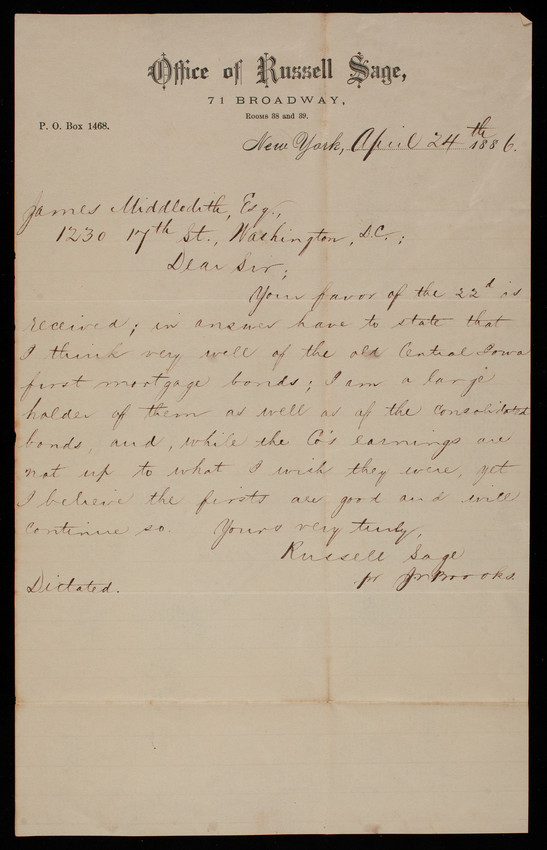 Office of Russell Sage,
71 BROADWAY,
ROOMS 38 and 39.
P. O. Box 1468.
New York, April 24th 1886.
James Middledith, Esq.,
1230 17th St., Washington, D.C.;
Dear Sir;
Your favor of the 22d is
received; in answer have to state that
I think very well of the old Central Iowa
first mortgage bonds; I am a large
holder of them as well as of the consolidated
bonds, and, while the Co's earnings are
not up to what I wish they were, yet
I believe the firsts are good and will
continue so. Yours very truly,
Russell Sage
pr Brooks.
Dictated.